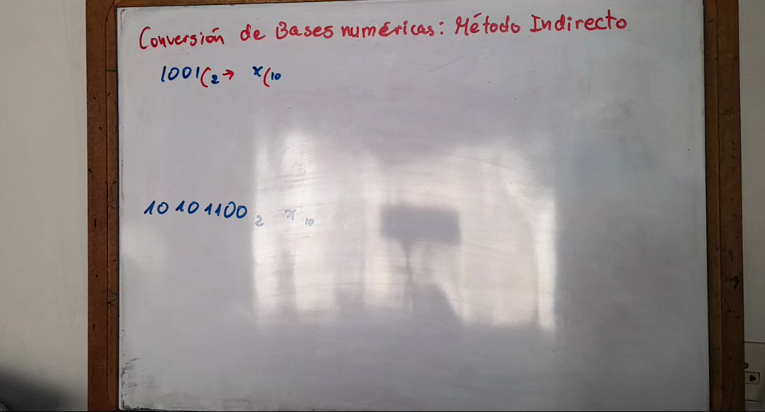 Conversión de Bases numéricas: Método Indirecto
1001(2 → x(10
10101100 2 x 10